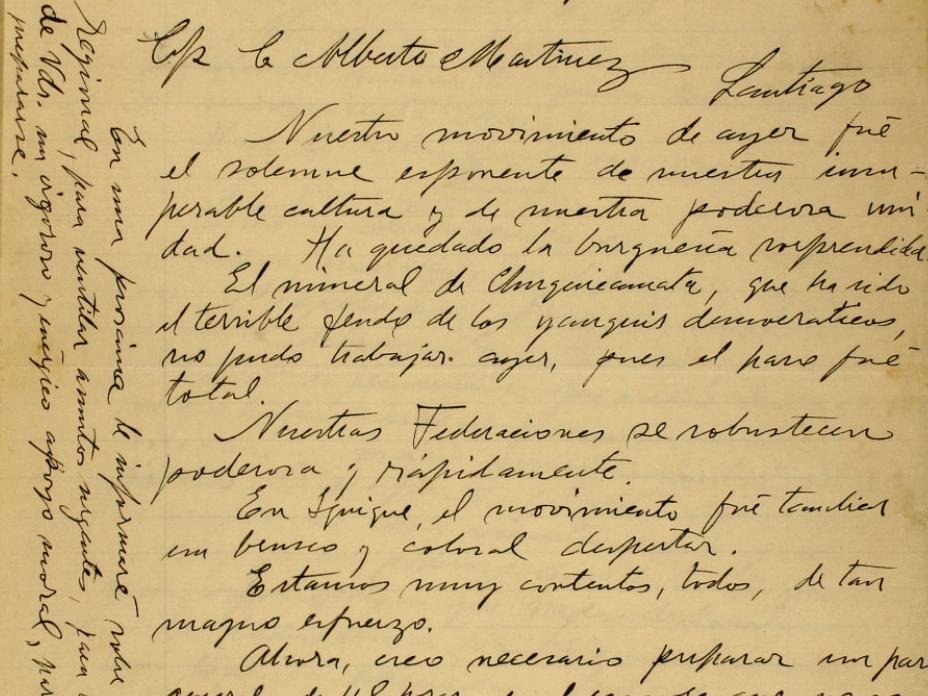 Alberto Martinez
Santiago
Nuestro movimiento de ayer fué
el solemne esponente de nuestra insu-
perable cultura y de nuestra poderosa uni-
dad. Ha quedado la burguesia sorprendida.
El mineral de Chuquicamata, que ha sido
el terrible feudo de los yanquis democraticos,
no pudo trabajar ayer, pues el paro fué
total.
Nuestras Federaciones se robustecen
poderosa y rápidamente.
En Iquique, el movimiento fué tambien
un y colosal despertar.
Estamos muy contentos, todos, de tan
magno esfuerzo.
Ahora, creo necesario preparar un par
En una proxima le informaré sobre
Regional, para ventilar asuntos urgentes, para
de Vds. un vigoroso y enérgico apoyo moral,
prepararse.